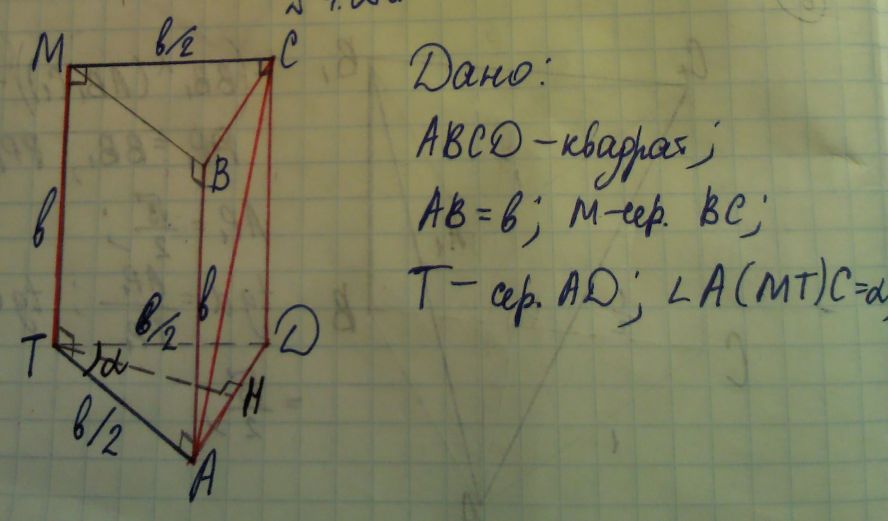 M
в/2
C
B
в
в
в/2
T
α
D
H
в/2
A
Дано:
ABCD – квадрат;
AB = в; M – сер. BC;
T – сер. AD; ∠A(MT)C=α,